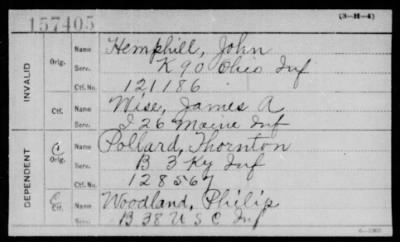 157405
(3-H-4)
INVALID
Orig.
Name Hemphill, John
Serv. K 90 Ohio Inf
Ctf. No. 121186
Ctf.
Name Wise, James A
Serv. I 26 Maine Inf
DEPENDENT
C
Orig.
Name Pollard, Thornton
Serv. B 3 Ky Inf
Ctf. No. 128567
C
Ctf.
Name Woodland, Philip
Serv. B 38 U S C Inf